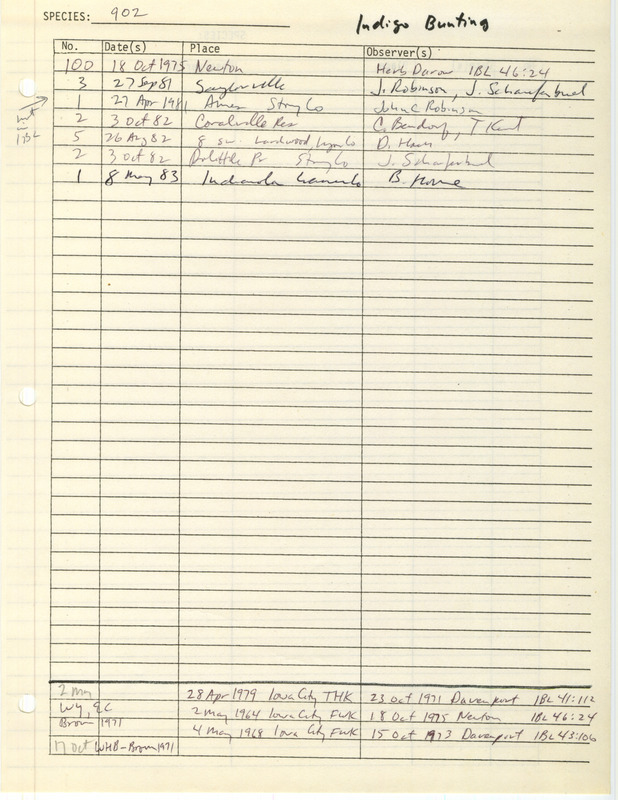 SPECIES: 902
Indigo Bunting
No. Date(s) Place Observer(s)
100 18 Oct 1975 Newton Herb Darow IBL 46:24
3 27 Sep 81 Saylorville J. Robinson, J. Schaufenbuel
1 27 Apr 1981 Ames Story Co John C Robinson
not in IBL
2 3 Oct 82 Coralville Res C. Bendorf, T Kent
5 26 Aug 82 8 sw. Lyon Co D.
2 3 Oct 82 Dolittle Pr Story Co J. Schaufenbuel
1 8 May 83 Indianola B.
2 May 28 Apr 1979 Iowa City THK 23 Oct 1971 Davenport IBL 41:112
WY, EC 2 May 1964 Iowa City FWK 18 Oct 1975 Newton IBL 46:24
Brown 1971
4 May 1968 Iowa City FWK 15 Oct 1973 Davenport IBL 43:106
17 Oct WHB-Brown 1971